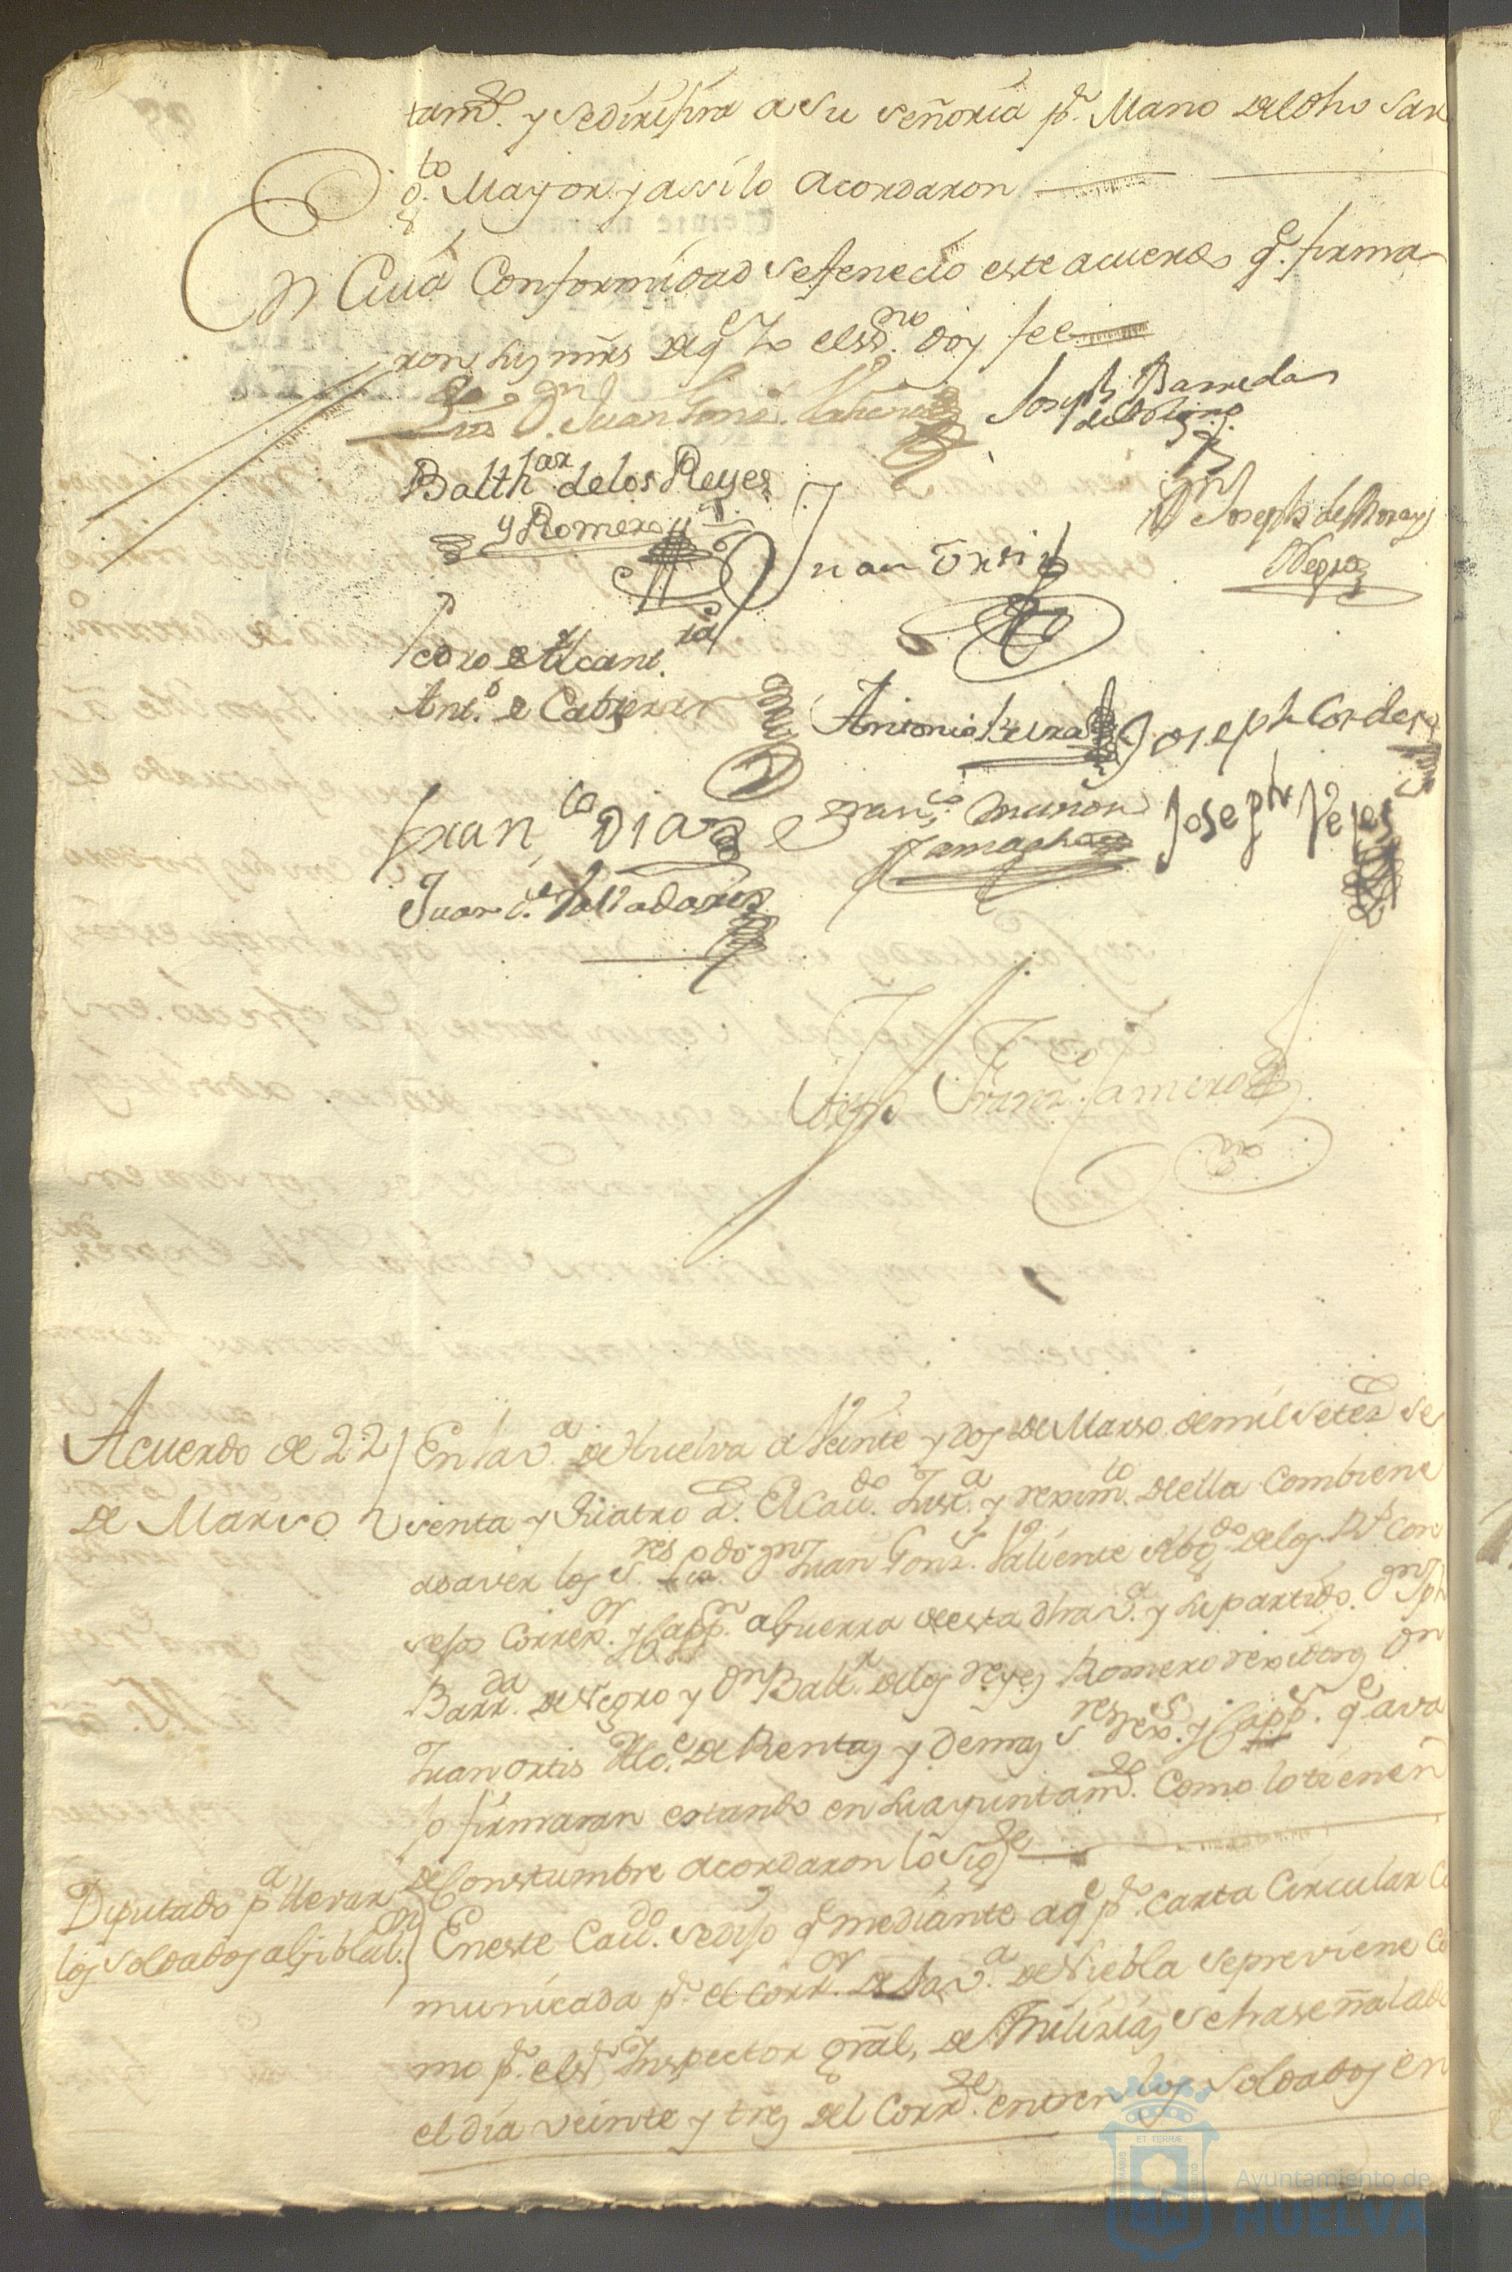 tamte. y se dirixira a su señoria pr. Mano del dho Sarx
to. Mayor y assi lo acordaron
En Cuia Conformidad se fenecio este acuerdo qe. firma
ron sus mrds de qe Yo el essno. doy fee
Lizdo Dn Juan Gonz. Valiente
Joseph Barreda
Balthar de los Reyes
y Romero
Juan Ortiz
Dn Joseph de
Negro
Pedro de Alcant.ra
Anto. de Cabrera
Antonio
Joseph Cordero
Franco Diaz
Franco Muñon
Joseph Velez
Juan de Valladares
Franco Camero
Acuerdo de 22
de Marso
En la va. de Huelva a Veinte y dos de Marso de mil setezs. se
senta y Quatro as. El Cavdo. Justa. y reximto. de ella Combiene
a saver los Sres. Lizdo. Dn Juan Gonz. Valiente Abogdo de los Rs. Con
sejos Correxor. y Cappn. a Guerra de esta dha va. y su partido. Dn Jph
Barrda. de Negro y Dn Baltr. de los reyes Romero rexidores Dn
Juan ortis Alce. de Rentas y Demas Sres rexs. y Capps. qe avax
jo firmaran estando en su ayuntamte. Como lo tienen
de Constumbre acordaron lo sigte
Diputado pa llevar
los soldados a Gibl.
En este Cavdo. se dijo qe mediante a qe pr. carta Circular Co
municada pr. el Corror. de la va. de Niebla se previene co
mo pr. el sr. Inspector gral, de Milizias se ha señalado
el dia veinte y tres del Corrte. entren los soldados en
ET TERRAE
Ayuntamiento de
HUELVA